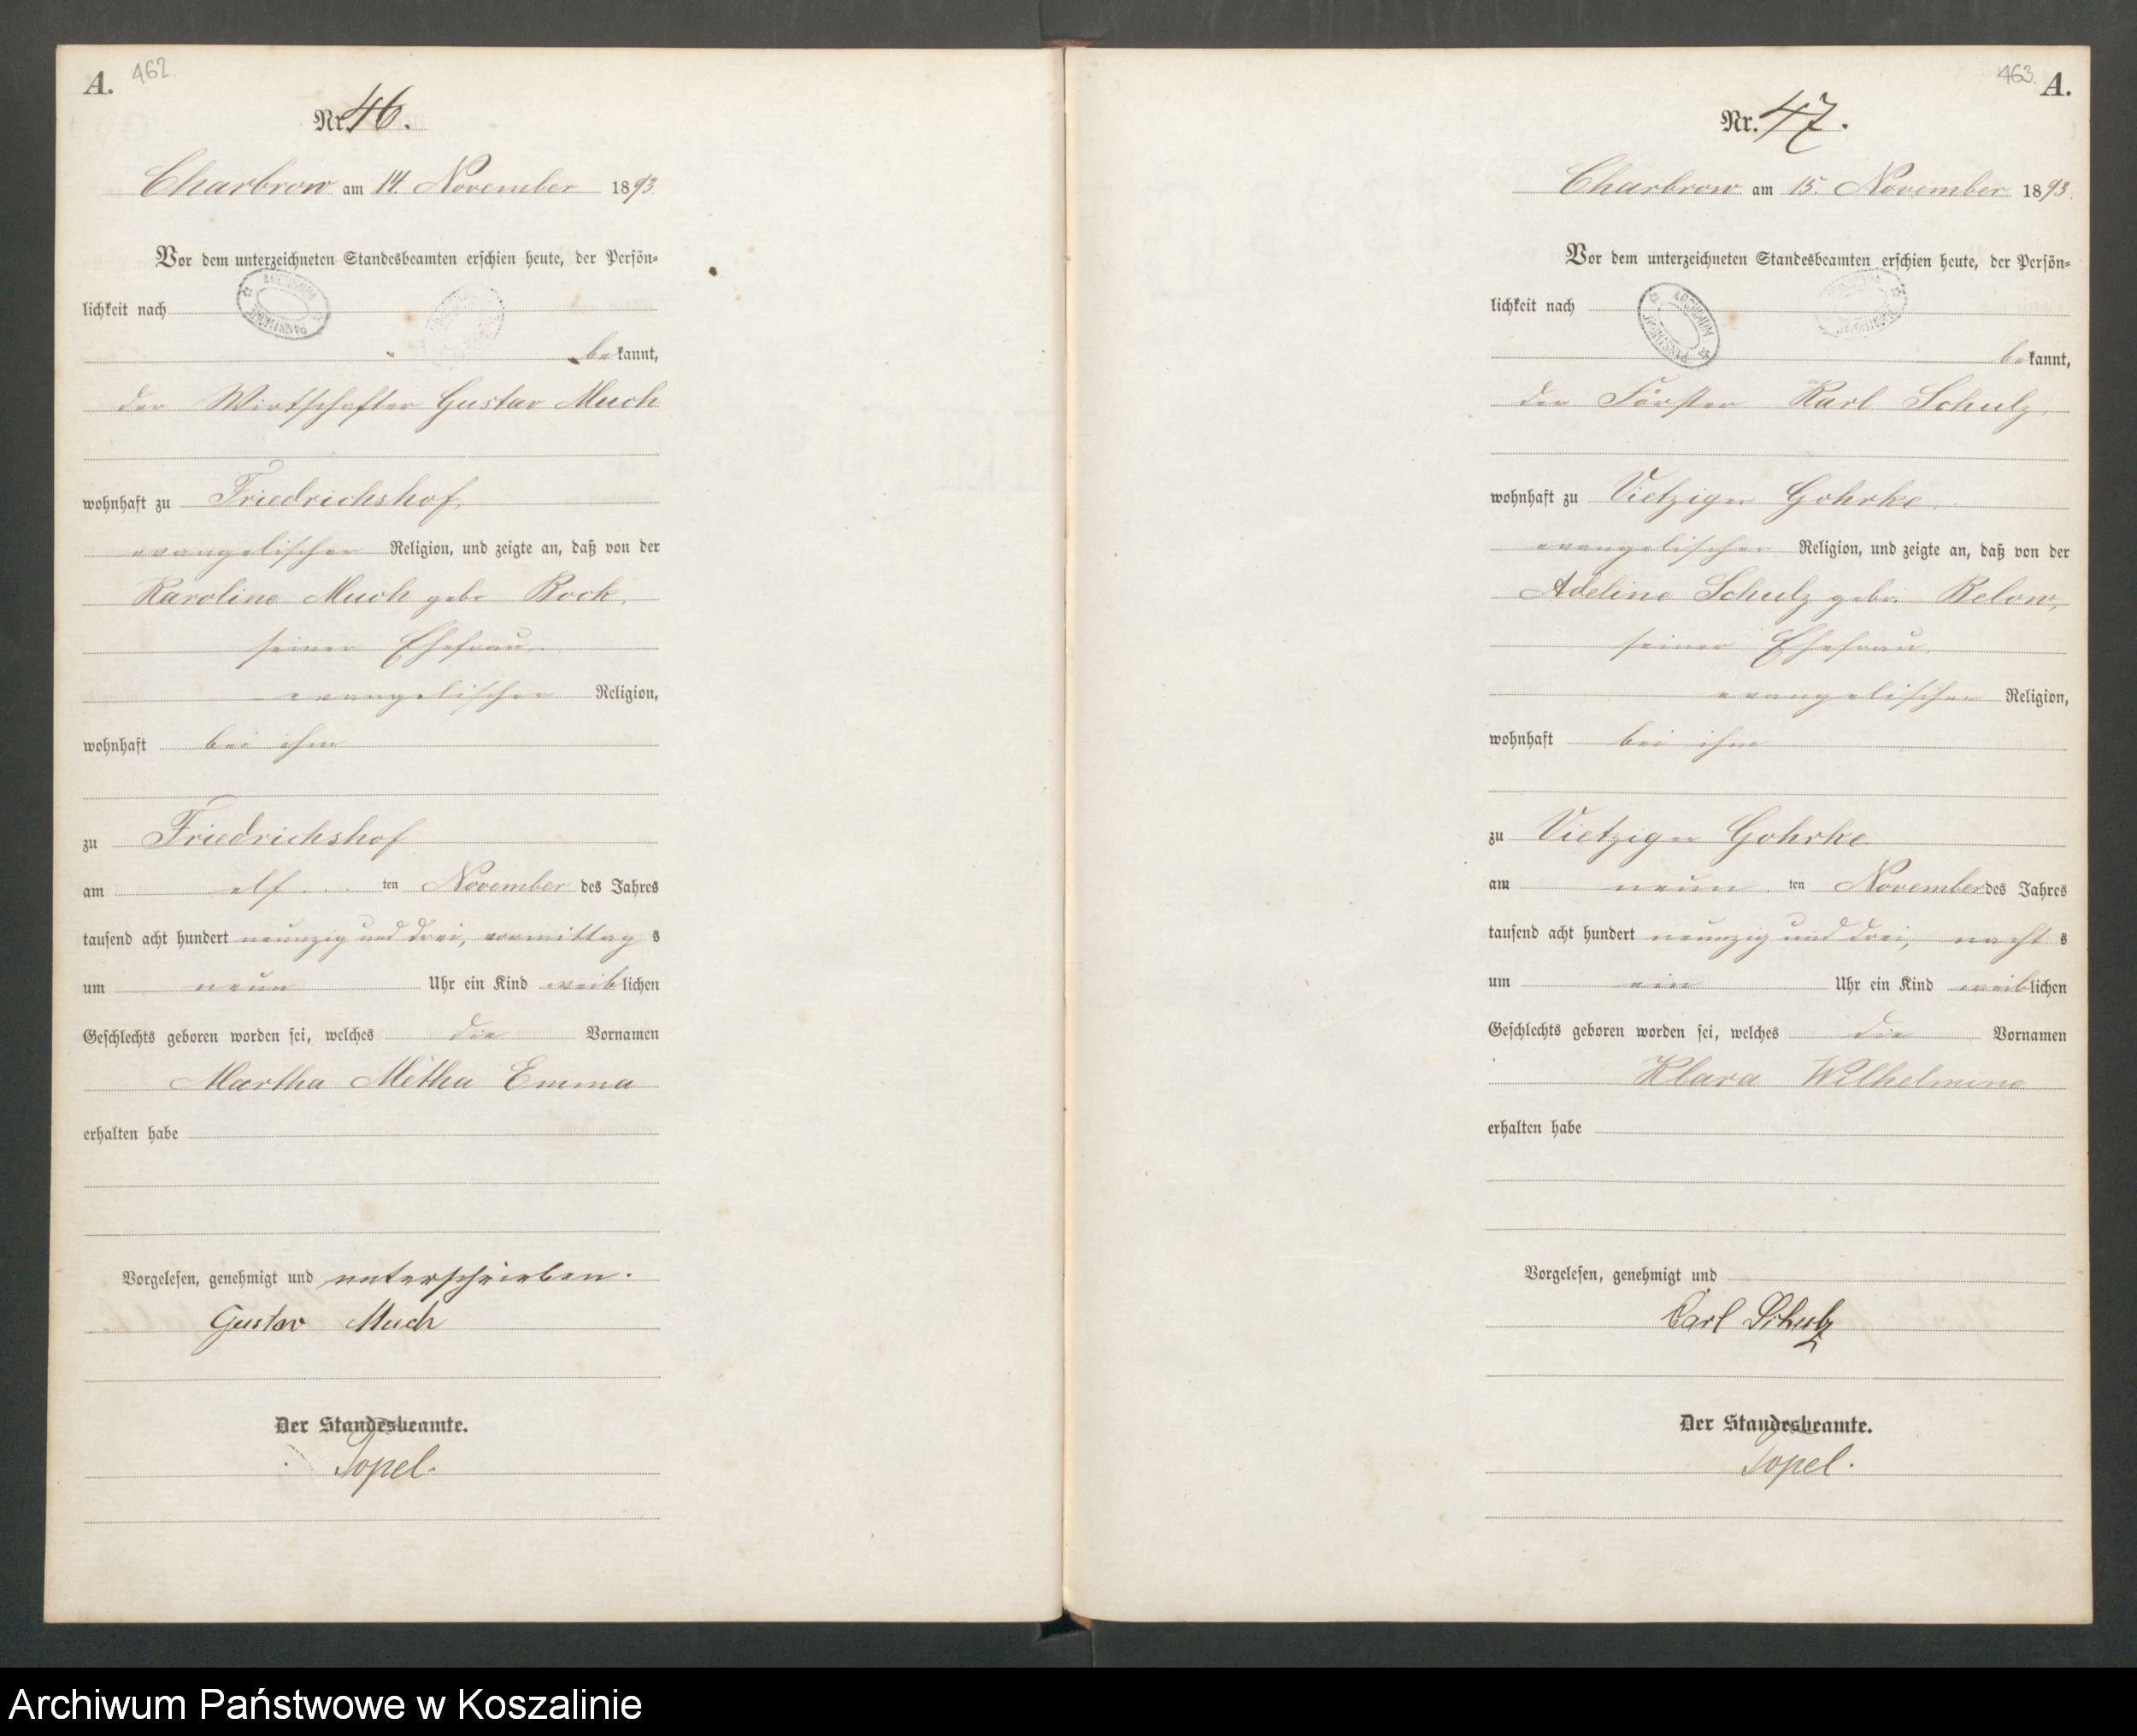 A. 462.
Nr. 46.
Charbrow am 14. November 1893.
Vor dem unterzeichneten Standesbeamten erschien heute, der Persön-
lichkeit nach
ARCHIWUM PAŃSTWOWE
bekannt,
der Wirtschafter Gustav Much
wohnhaft zu Friedrichshof,
evangelischer Religion, und zeigte an, daß von der
Karoline Much geb. Bock,
seiner Ehefrau,
evangelischer Religion,
wohnhaft bei ihm
zu Friedrichshof
am elf ten November des Jahres
tausend acht hundert neunzig und drei, vormittag s
um neun Uhr ein Kind weiblichen
Geschlechts geboren worden sei, welches die Vornamen
Martha Metha Emma
erhalten habe
Vorgelesen, genehmigt und unterschrieben.
Gustav Much
Der Standesbeamte.
Topel.
463. A.
Nr. 47.
Charbrow am 15. November 1893.
Vor dem unterzeichneten Standesbeamten erschien heute, der Persön-
lichkeit nach
ARCHIWUM PAŃSTWOWE
bekannt,
der Förster Karl Schulz,
wohnhaft zu Vietziger Gohrke,
evangelischer Religion, und zeigte an, daß von der
Adeline Schulz geb. Below,
seiner Ehefrau,
evangelischer Religion,
wohnhaft bei ihm
zu Vietziger Gohrke
am neun ten November des Jahres
tausend acht hundert neunzig und drei, nacht s
um ein Uhr ein Kind weiblichen
Geschlechts geboren worden sei, welches die Vornamen
Klara Wilhelmine
erhalten habe
Vorgelesen, genehmigt und
Carl Schulz
Der Standesbeamte.
Topel.
Archiwum Państwowe w Koszalinie